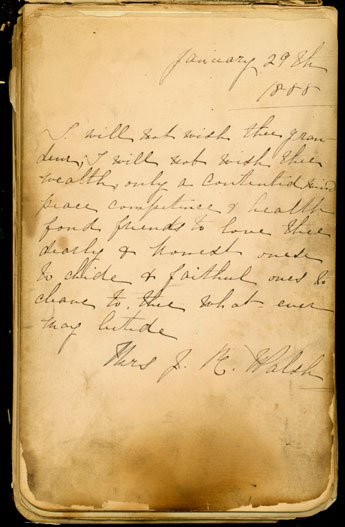 January 29th
1888
I will not wish thee gran
deur, I will not wish thee
wealth, only a contented
peace competence & health
fond friends to love thee
dearly & honest ones
to chide & faithful ones to
cleave to thee what ever
may betide
Mrs J. K. Walsh